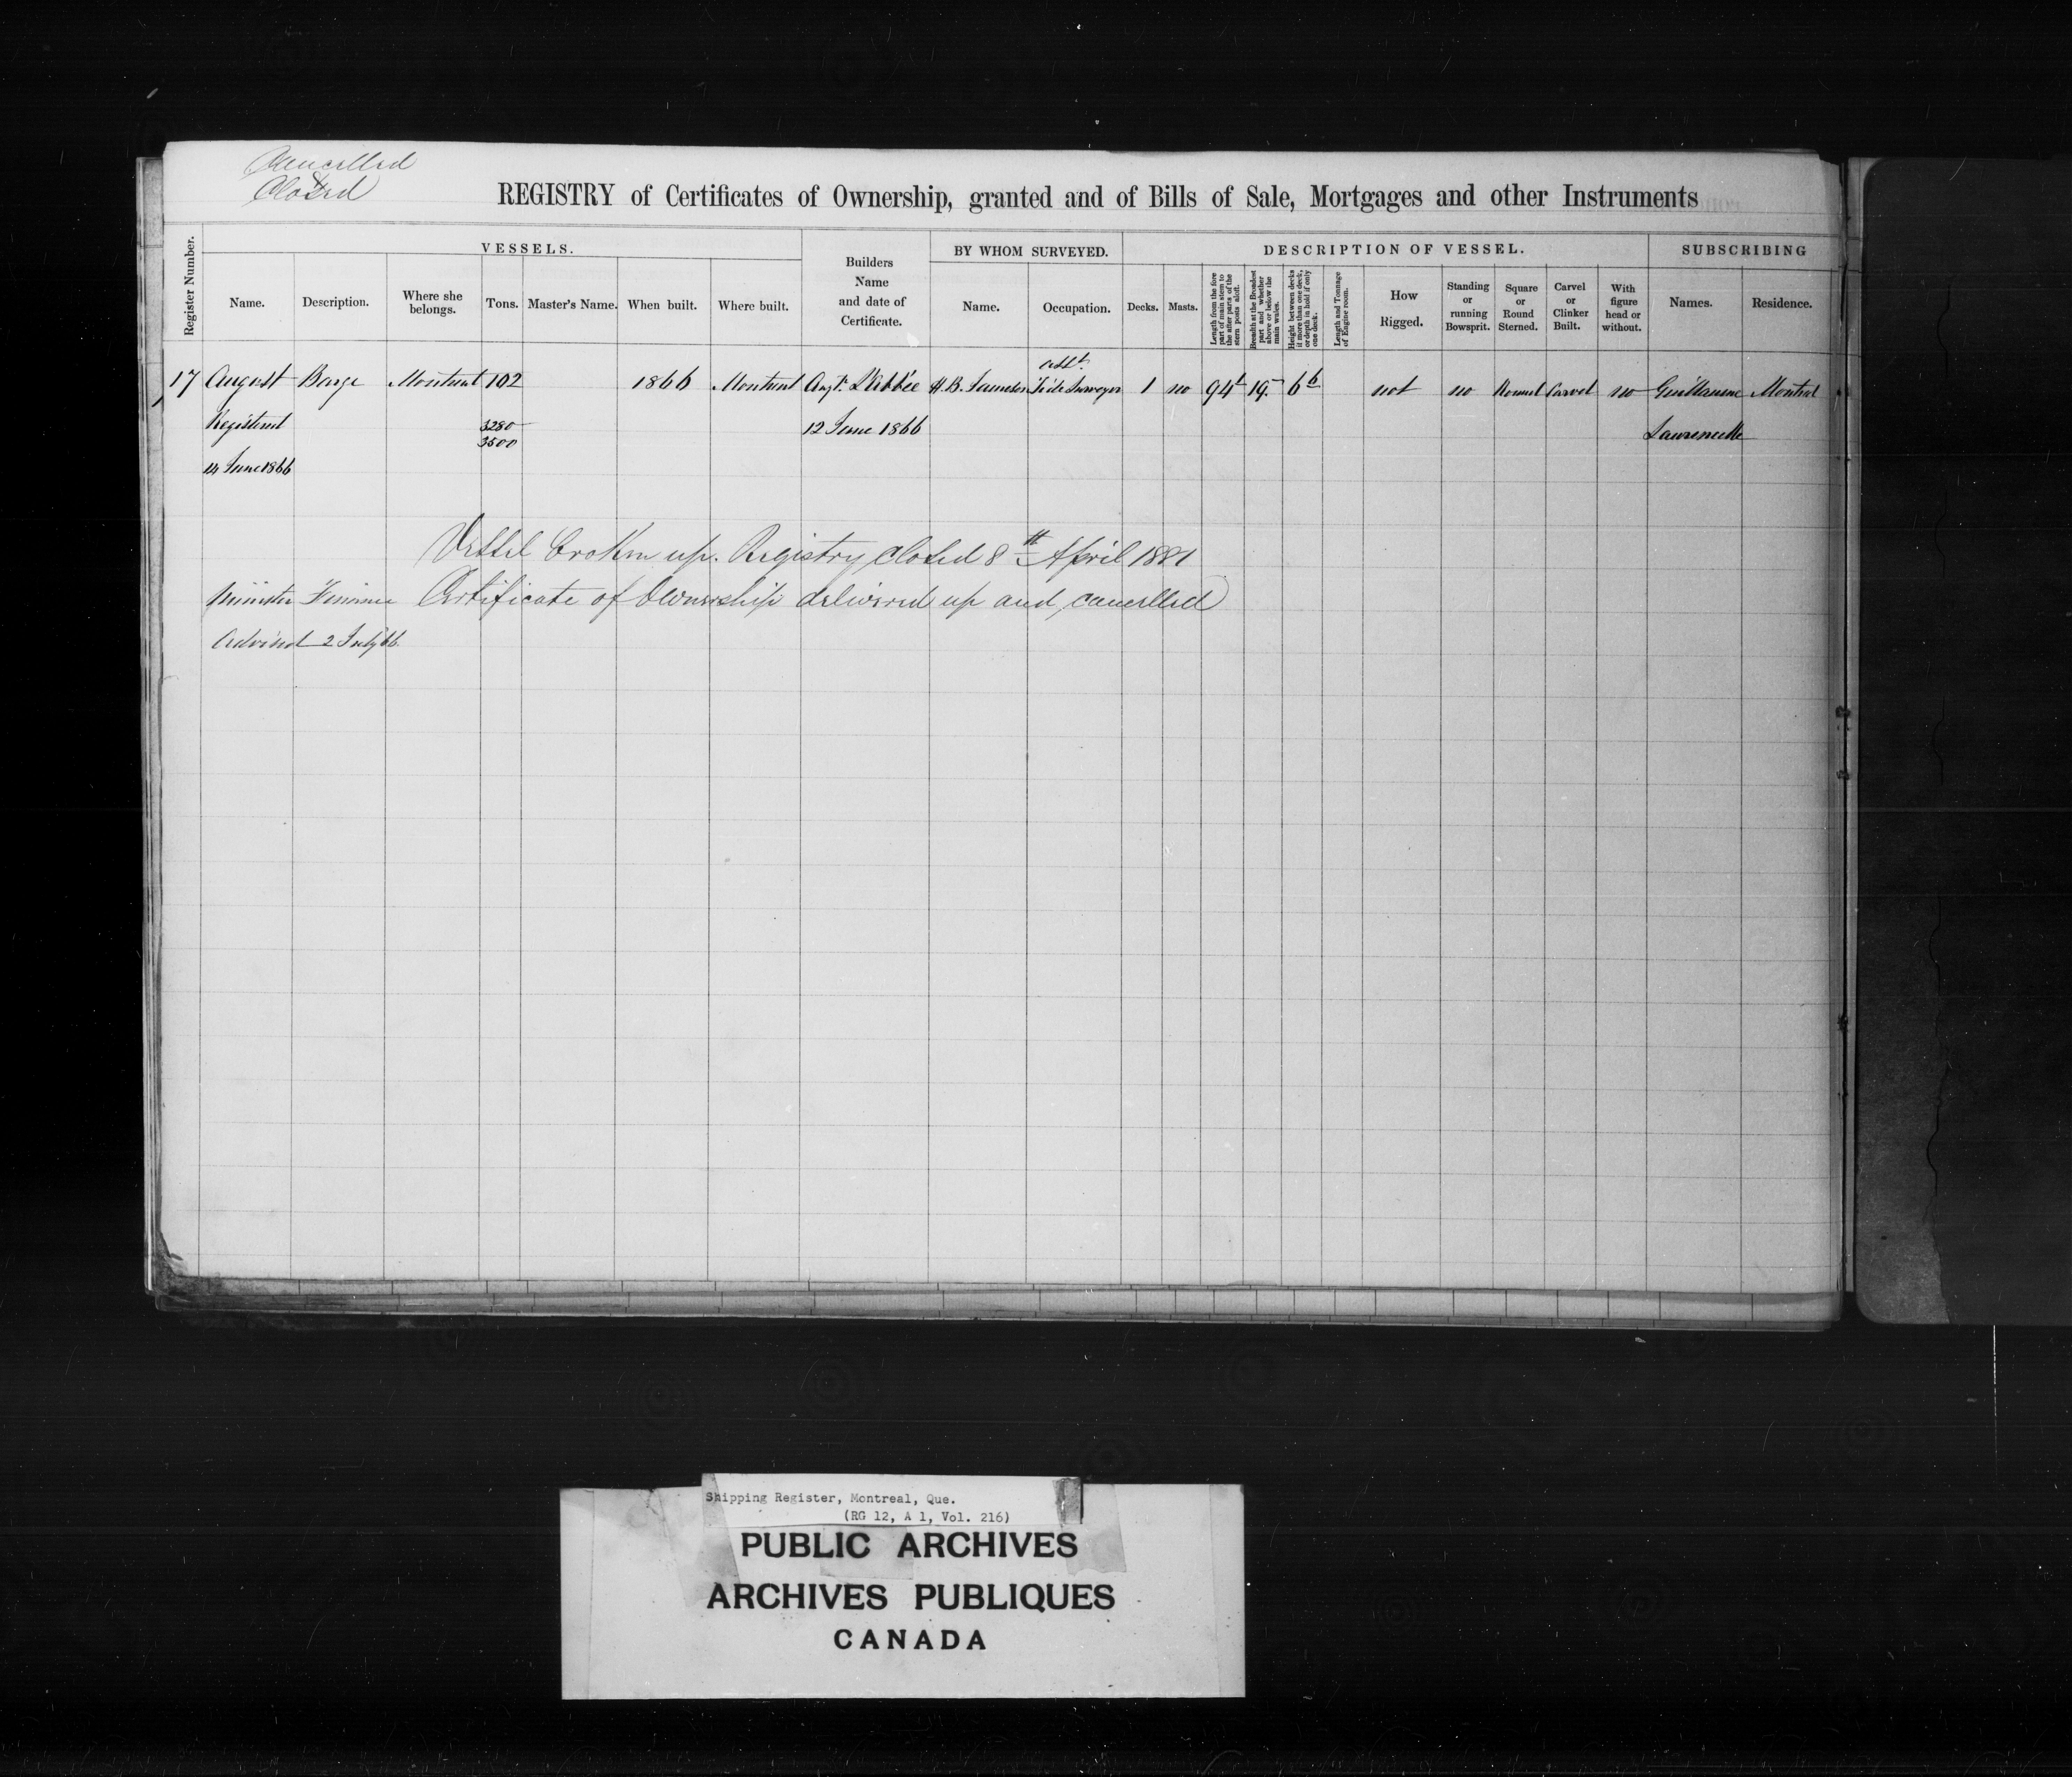 Cancelled
&
Closed
REGISTRY of Certificates of Ownership, granted and of Bills of Sale, Mortgages and other Instruments
Register Number.
VESSELS.
Name.
Description.
Where she belongs.
Tons.
Master's Name.
When built.
Where built.
Builders Name and date of Certificate.
BY WHOM SURVEYED.
Name.
Occupation.
DESCRIPTION OF VESSEL.
Decks.
Masts.
Length from the fore part of main stem to the after parts of the stern posts aloft.
Breadth at the Broadest part and whether above or below the main wales.
Height between decks if more than one deck, or depth in hold if only one deck.
Length and Tonnage of Engine room.
How Rigged.
Standing or running Bowsprit.
Square or Round Sterned.
Carvel or Clinker Built.
With figure head or without.
SUBSCRIBING
Names.
Residence.
Asst.
17 August Barge Montreal 102 1866 Montreal Augt. L'Abbée H.B. Saunders Tide Surveyor 1 no 94 19 6 6 not no Round Carvel no Guillaume Montreal
Registered 3280 12 June 1866 Laurencelle
3500
14 June 1866
Vessel broken up. Registry closed 8th April 1881
Minister Finance Certificate of Ownership delivered up and cancelled
Advised 2 July 66
Shipping Register, Montreal, Que.
(RG 12, A 1, Vol. 216)
PUBLIC ARCHIVES
ARCHIVES PUBLIQUES
CANADA